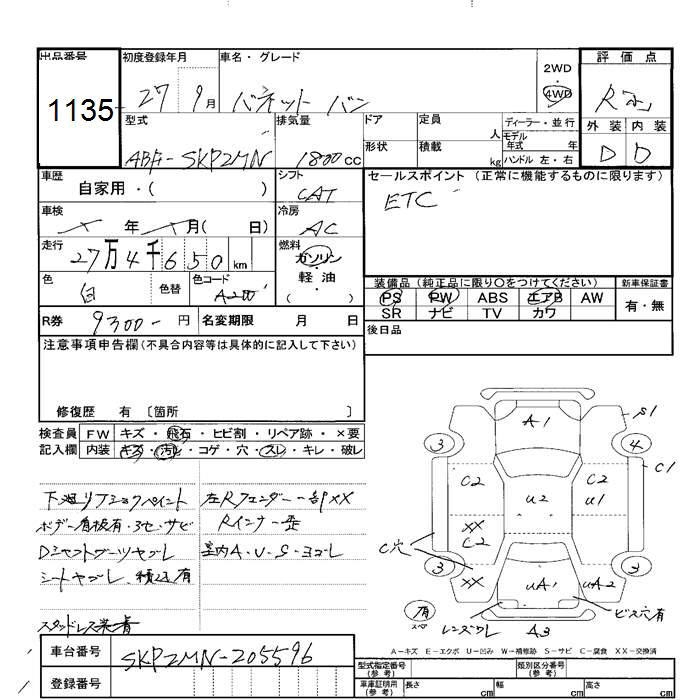 出品番号
1135
初度登録年月
27 9月
車名・グレード
バネット バン
2WD
4WD
評価点
外装 内装
D D
型式
ABF-SKP2MN
排気量
1800cc
ドア
定員
人
ディーラー・並行
モデル
年式 年
形状
積載
kg
ハンドル 左・右
車歴
自家用・( )
シフト
CAT
セールスポイント (正常に機能するものに限ります)
ETC
車検
年 月( 日)
冷房
AC
走行
27万4千650km
燃料
ガソリン
軽・油
( )
色
白
色替
色コード
装備品 (純正品に限り○をつけてください)
新車保証書
PS PW ABS エアB AW
有・無
SR ナビ TV カワ
R券
9300-円
名変期限 月 日
後日品
注意事項申告欄(不具合内容等は具体的に記入して下さい)
修復歴 有 〔箇所 〕
検査員
記入欄
FW キズ・飛石・ヒビ割・リペア跡・×要
内装 キズ・汚れ・コゲ・穴・スレ・キレ・破レ
下廻リ
ペイント
左Rフェンダー一部XX
ボデー看板有・キセ・サビ
Rインナー歪
Dシャフトブーツヤブレ
室内A・U・S・ヨゴレ
シートヤブレ
有
スタッドレス装着
A1
S1
3
4
C1
C2
C2
U2
U1
XX
C2
C穴
3
3
XX
UA1
UA2
有
スペア
レンズワレ
A3
ビス穴有
A-キズ E-エクボ U-凹み W-補修跡 S-サビ C-腐食 XX-交換済
車台番号
SKP2MN-205596
登録番号
型式指定番号
(参考)
類別区分番号
(参考)
車庫証明用
(参考)
長さ cm
幅 cm
高さ cm